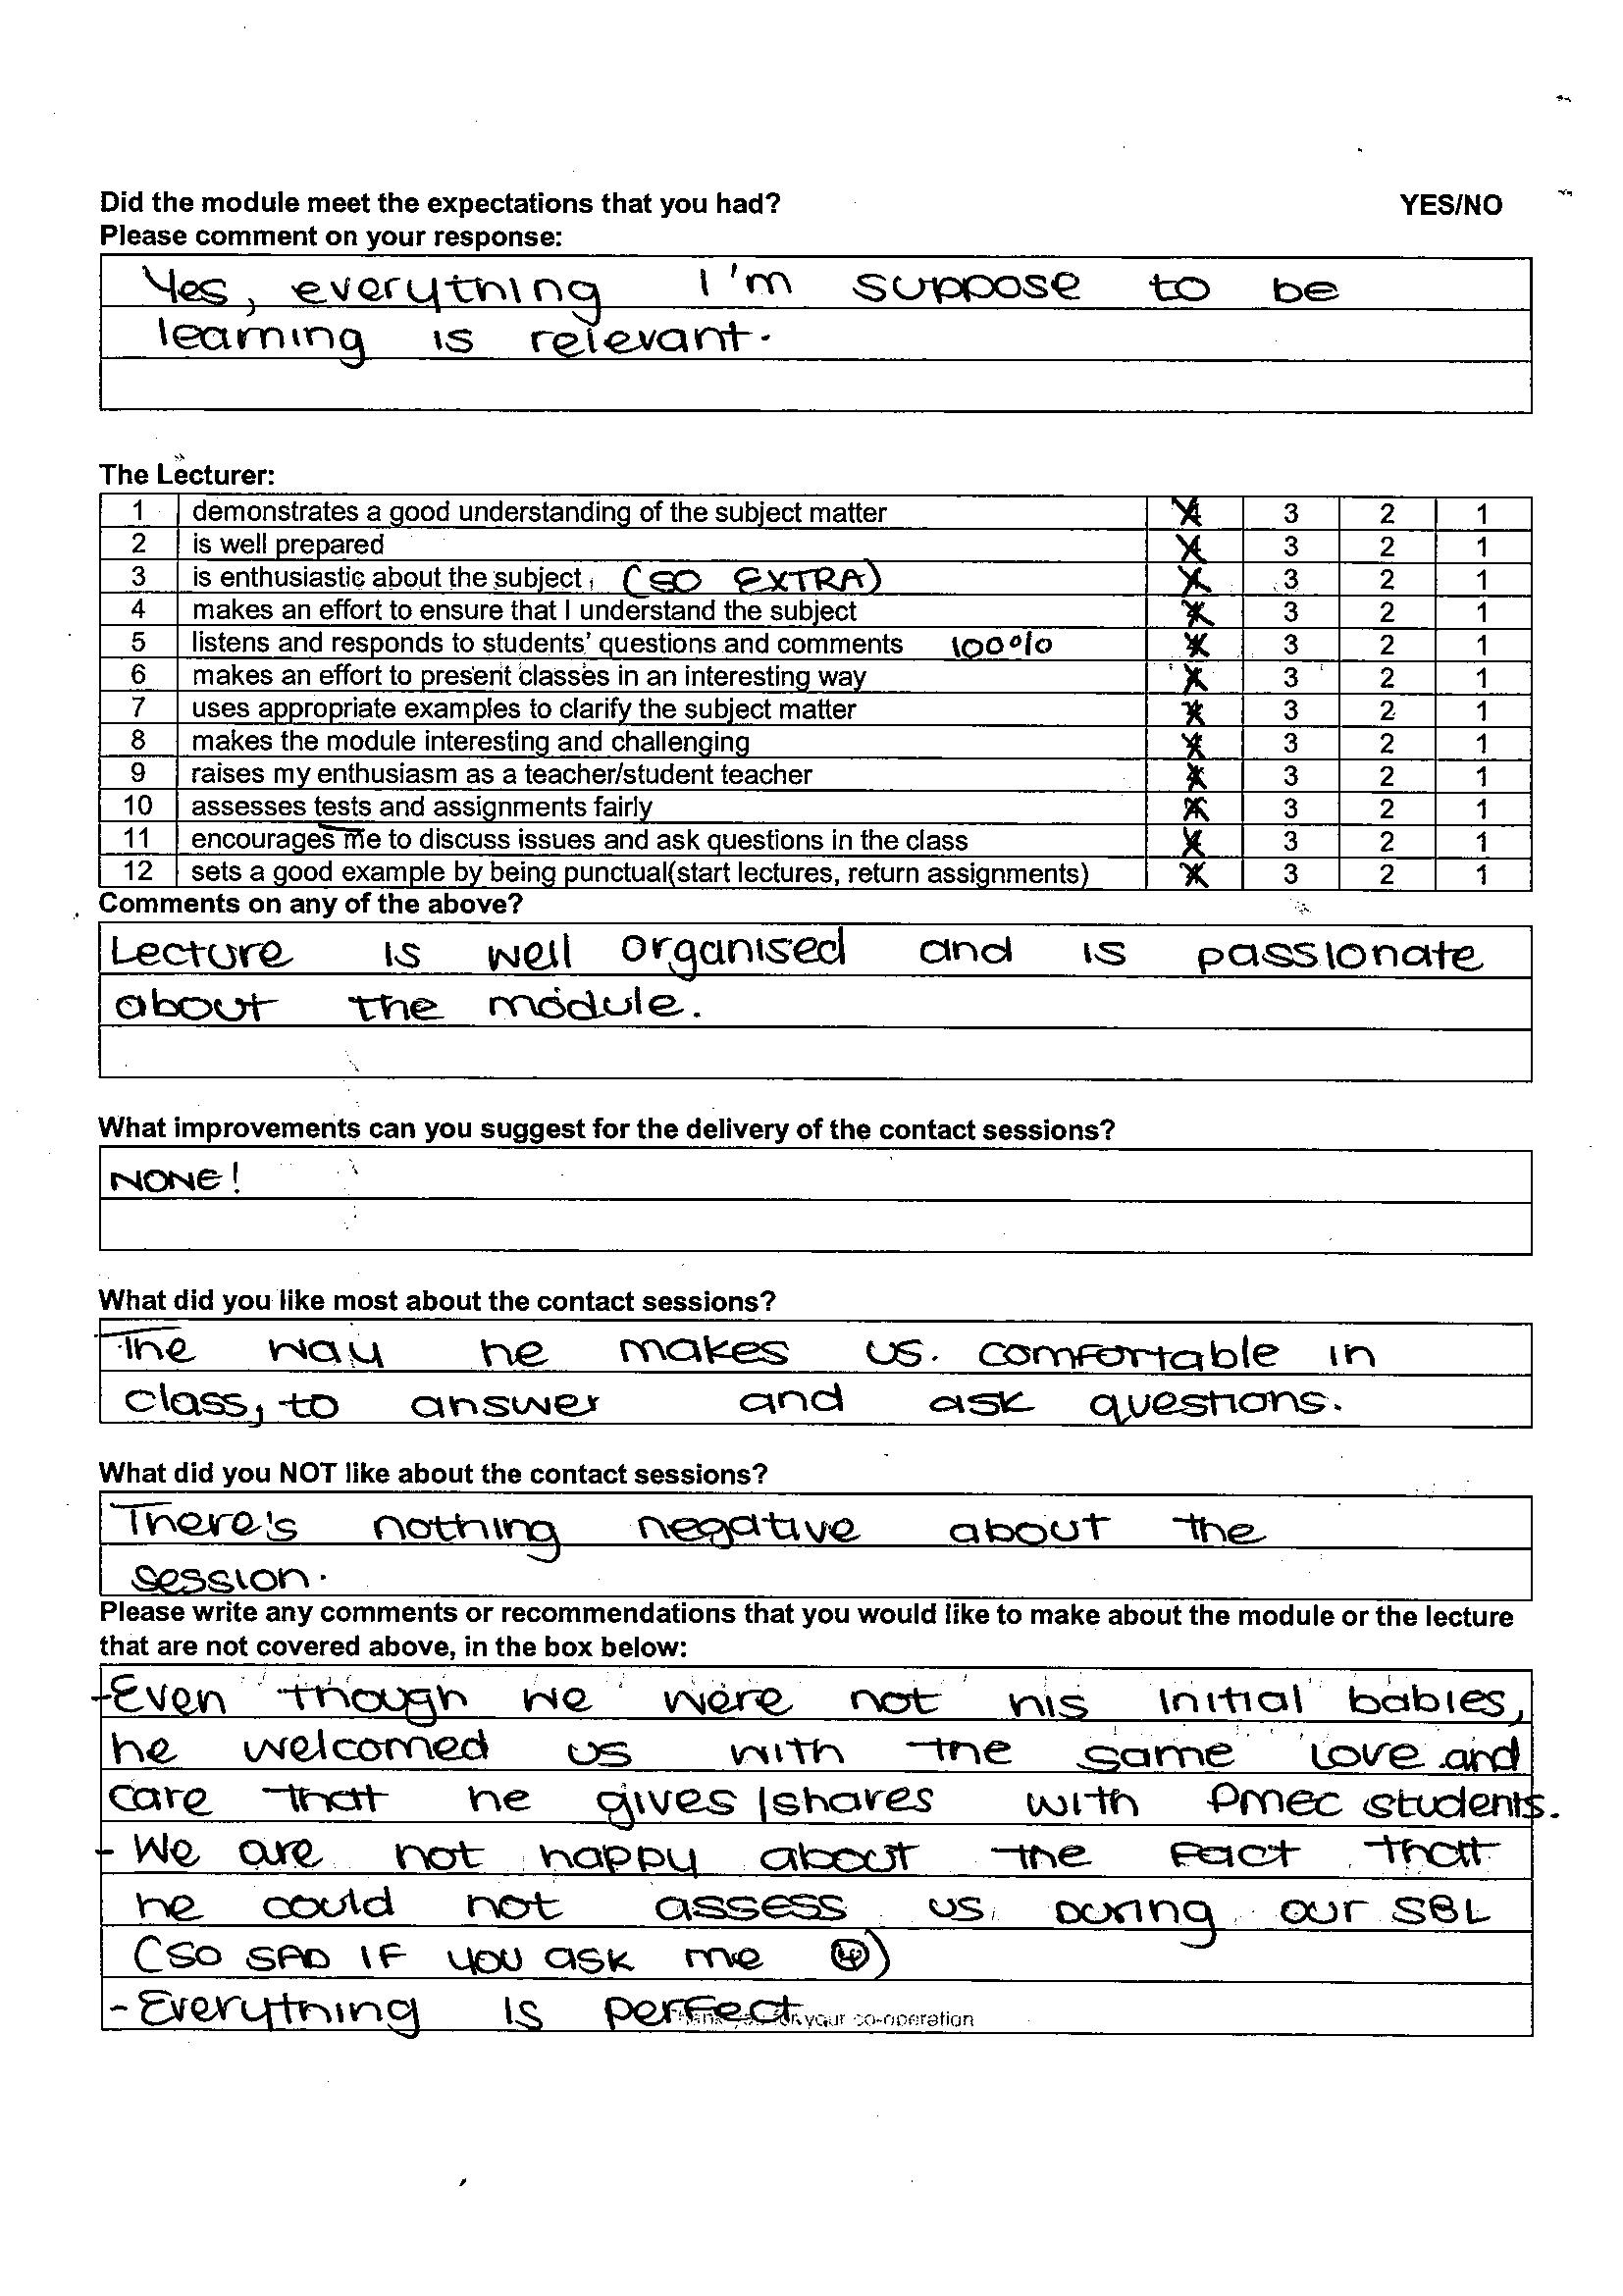 Did the module meet the expectations that you had? YES/NO
Please comment on your response:
Yes, everything I'm suppose to be
learning is relevant.
The Lecturer:
1 demonstrates a good understanding of the subject matter 4 3 2 1
2 is well prepared 4 3 2 1
3 is enthusiastic about the subject, (SO EXTRA) 4 3 2 1
4 makes an effort to ensure that I understand the subject 4 3 2 1
5 listens and responds to students' questions and comments 100% 4 3 2 1
6 makes an effort to present classes in an interesting way 4 3 2 1
7 uses appropriate examples to clarify the subject matter 4 3 2 1
8 makes the module interesting and challenging 4 3 2 1
9 raises my enthusiasm as a teacher/student teacher 4 3 2 1
10 assesses tests and assignments fairly 4 3 2 1
11 encourages me to discuss issues and ask questions in the class 4 3 2 1
12 sets a good example by being punctual(start lectures, return assignments) 4 3 2 1
Comments on any of the above?
Lecture is well organised and is passionate
about the module.
What improvements can you suggest for the delivery of the contact sessions?
NONE!
What did you like most about the contact sessions?
The way he makes us comfortable in
class, to answer and ask questions.
What did you NOT like about the contact sessions?
There's nothing negative about the
session.
Please write any comments or recommendations that you would like to make about the module or the lecture
that are not covered above, in the box below:
-Even though we were not his initial babies,
he welcomed us with the same love and
care that he gives/shares with Pmec students.
- We are not happy about the fact that
he could not assess us during our SBL
(SO SAD IF YOU ask me ☹)
- Everything is perfect
Thank you for your co-operation